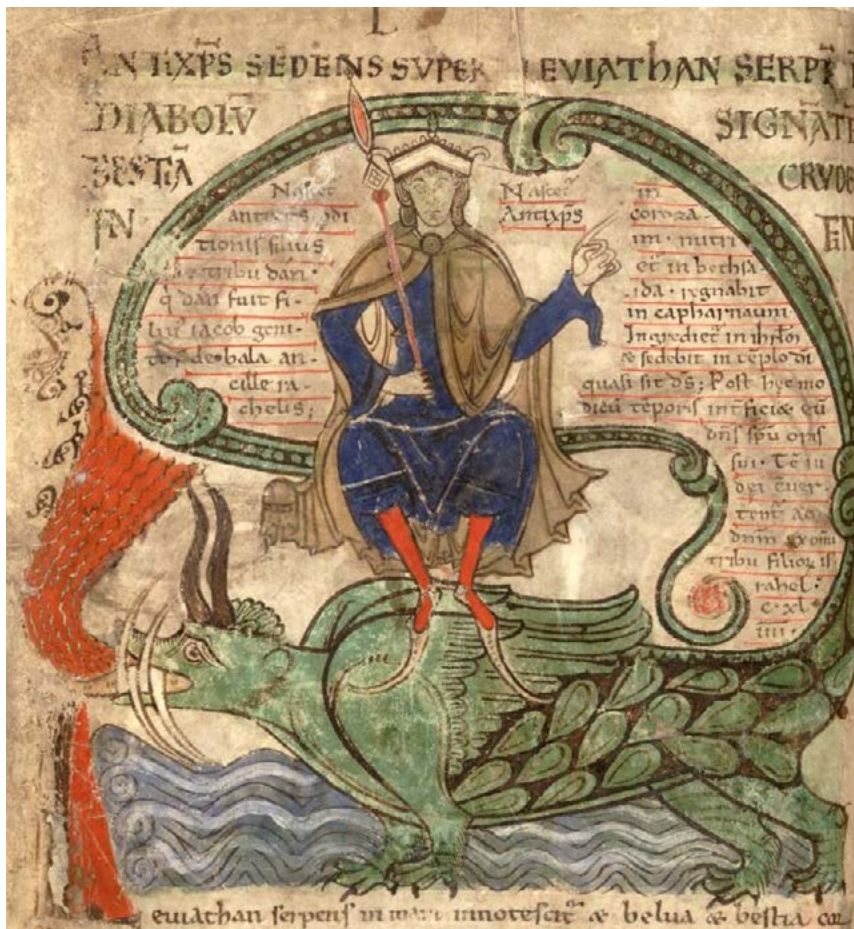 L
ANTIXPS SEDENS SUPER LEVIATHAN SERPEN
DIABOLV̄ SIGNANTĒ
BESTIĀ CRVDE
IN FIN
Nascet̄
antix̄p̄s
tionis filius
tribu dan·
q̄ dan fuit fi-
lius iacob geni-
de bala an-
cille ra-
chelis;
Nascet̄ in
Antix̄p̄s coroza-
im· nutri
et̄ in bethsa-
ida· regnabit
in capharnaum·
Ingrediet̄ in ihrl̄m
& sedebit in tēplo dī
quasi sit d̄s; Post hęc mo
dicū tēporis int̄ficiæ eū
dn̄s sp̄u oris
sui· Tē iu
dei ēuer-
tent̄ ad
dnm̄ ex omi
tribu filioꝝ is
rahel·
c· xl·
iiii·
eviathan serpens in mari innotescit̄ & belua & bestia cor